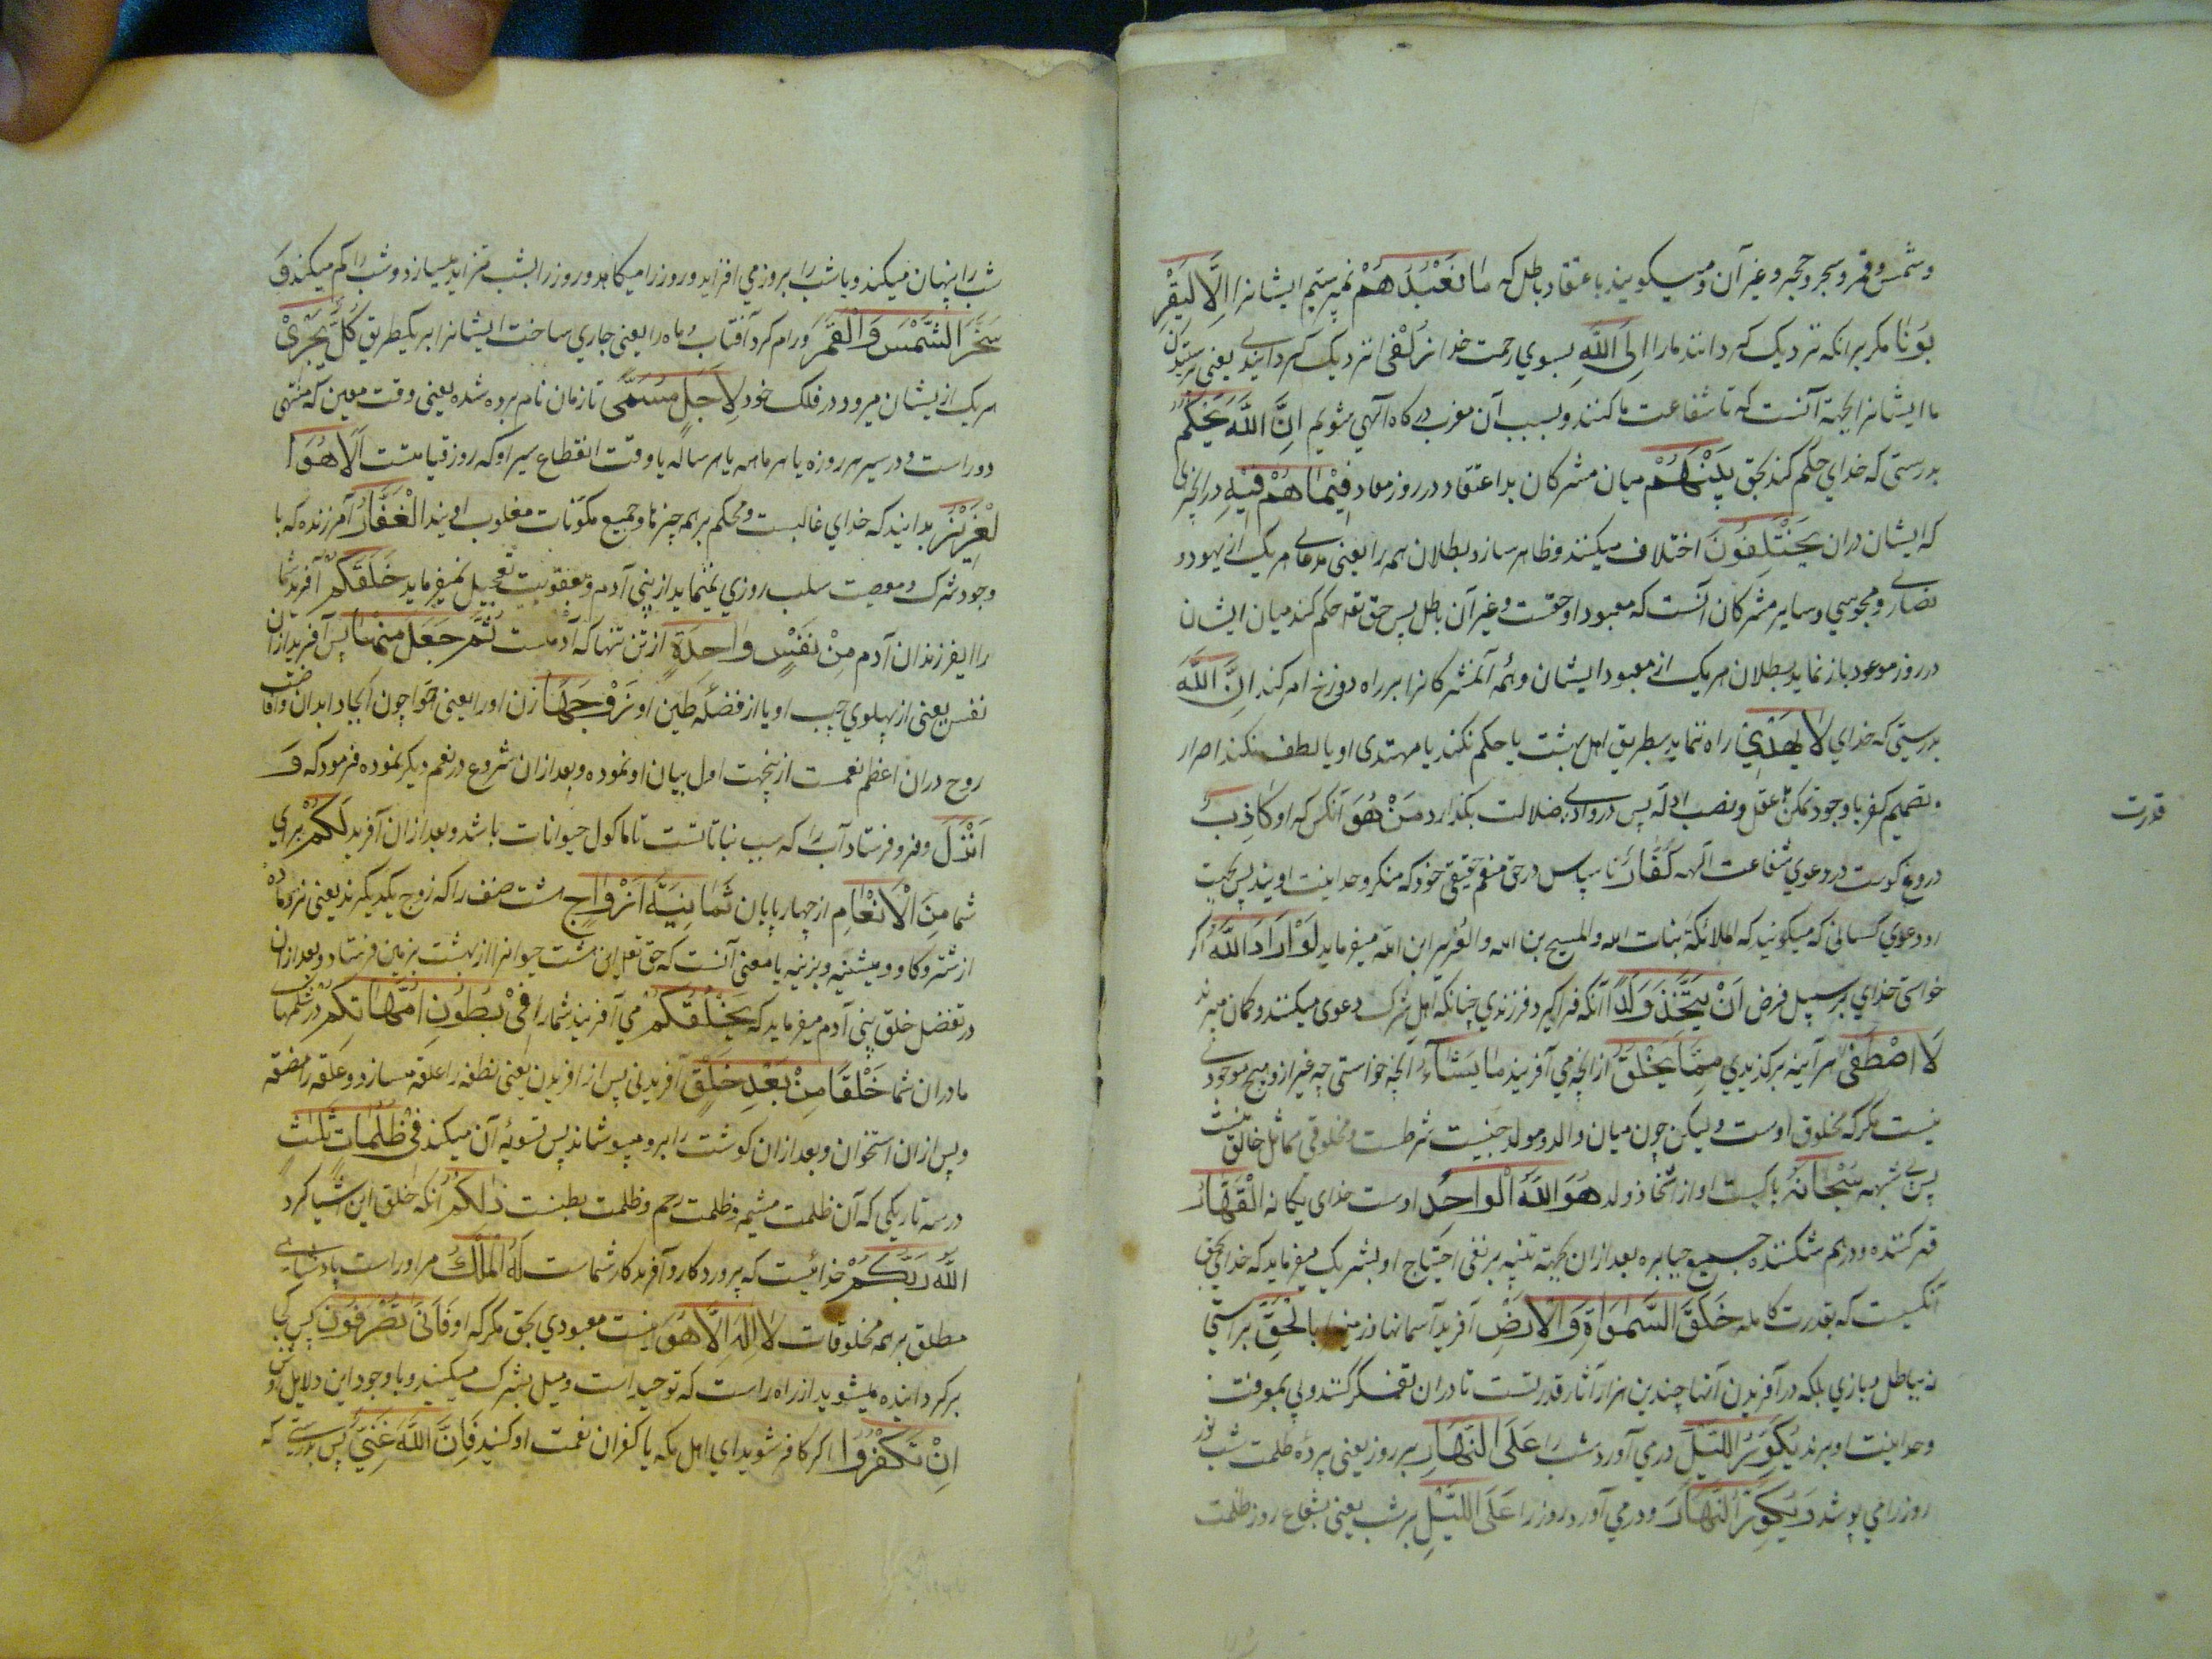 و شمس و قمر و شجر و حجر و غیر آن و میکویند باعتقاد باطل که مَا نَعْبُدُهُمْ نمیپرستیم ایشانرا اِلَّا لِیُقَرِّ
بُونَا مکر برانکه نزدیک کردانند مارا اِلَی اللّٰهِ بسوي رحمت خدا زُلْفٰی نزدیک کردانیدنی یعنی پرستیدن
ما ایشانرا بجهة آنست که تا شفاعت ما کنند و بسبب آن مقرب درکاه آلهي شویم اِنَّ اللّٰهَ یَحْکُمُ
بدرستی که خداي حکم کند بحق بَیْنَهُمْ میان مشرکان بد اعتقاد در روز معاد فِیْمَا هُمْ فِیْهِ در انچیزی
که ایشان دران یَخْتَلِفُونَ اختلاف میکنند و ظاهر سازد بطلان همه را یعنی مدعای هریک از یهود و
نصاری و مجوسي و سایر مشرکان آنست که معبود او حقست و غیر آن باطل پس حق تعه حکم کند میان ایشان
در روز موعود باز نماید بطلان هریک از معبود ایشان و همه آنمشرکانرا بر راه دوزخ امر کند اِنَّ اللّٰهَ
بدرستی که خداي لَا یَهْدِیْ راه ننماید بطریق اهل بهشت یا حکم نکند با مهتدی او یا لطف نکند اصرار
و تصمیم کفر با وجود تمکن عقل و نصب ادله پس در وادی ضلالت بکذارد مَنْ هُوَ آنکس که او کَاذِبٌ
قدرت
دروغ کوست در دعوي شفاعت آلهه کُفَّارٌ نا سپاس در حق منعم حقیقی خود که منکر وحدانیت اویند پس بجهت
رد دعوي کسانی که میکویند که الملائکة بنات الله و المسیح بن الله و العزیر ابن الله میفرماید لَوْ اَرَادَ اللّٰهُ اکر
خواستی خداي بر سبیل فرض اَنْ یَتَّخِذَ وَلَدًا آنکه فرا کیرد فرزندي چنانکه اهل شرک دعوی میکنند و کمان میبرند
لَاصْطَفٰی هر آینه برکزیدي مِمَّا یَخْلُقُ از انچه مي آفریند مَا یَشَاءُ آنچه خواستی چه غیر ازو هیچ موجودی
نیست مکر که مخلوق اوست و لیکن چون میان والد و مولد جنسیت شرطست و مخلوقی مماثل خالق نیست
پس بی شبهه سُبْحَانَهُ پاکست او از اتخاذ ولد هُوَ اللّٰهُ الْوَاحِدُ اوست خدای یکانه الْقَهَّارُ
قهر کننده و درهم شکننده جمیع جبابره بعد ازان بجهة تنبیه بر نفی احتیاج او بشریک میفرماید که خداي بحق
آنکسیست که بقدرت کامله خَلَقَ السَّمٰوَاتِ وَالْاَرْضَ آفرید آسمانها و زمین را بِالْحَقِّ براستی
نه بباطل و بازي بلکه در آفریدن آنها چندین هزار آثار قدرتست تا دران تفکر کنند و پی بمعرفت
وحدانیت او برند یُکَوِّرُ اللَّیْلَ در مي آورد شب را عَلَی النَّهَارِ بر روز یعنی پردهٔ ظلمت شب نور
روز را مي پوشد وَیُکَوِّرُ النَّهَارَ و در مي آورد روز را عَلَی اللَّیْلِ بر شب یعنی بشعاع روز ظلمت
شب را پنهان میکند و یا شب را بروز مي افزاید و روز را میکاهد و روز را بشب متزاید میسازد و شب را کم میکند وَ
سَخَّرَ الشَّمْسَ وَالْقَمَرَ و رام کرد آفتاب و ماه را یعنی جاري ساخت ایشانرا بر یکطریق کُلٌّ یَجْرِیْ
هریک از یشان میرود در فلک خود لِاَجَلٍ مُسَمًّی تا زمان نام برده شده یعنی وقت معین که منتهی
دور است در سیر هر روزه یا هر ماهه یا هر ساله یا وقت انقطاع سیر او که روز قیامتست اَلَا هُوَ ا
لْعَزِیْزُ بدانید که خداي غالبست و محکم بر همه چیزها و جمیع مکونات مغلوب اویند الْغَفَّارُ آمرزنده که با
وجود شرک و معصیت سلب روزي نمینماید از بنی آدم و بعقوبت تعجیل نمیفرماید خَلَقَکُمْ آفرید شما
را ایفرزندان آدم مِنْ نَفْسٍ وَاحِدَةٍ از تن تنها که آدمست ثُمَّ جَعَلَ مِنْهَا پس آفرید از ان
نفس یعنی از پهلوي چپ او یا از فضلهٔ طین او زَوْجَهَا زن او را یعنی حوا چون ایجاد ابدان و افاضت
روح دران اعظم نعمست ازینجهت اول بیان او نموده و بعد ازان شروع در نعم دیکر نموده فرمود که وَ
اَنْزَلَ و فرو فرستاد آب را که سبب نباتاتست تا ماکول حیوانات باشد و بعد ازان آفرید لَکُمْ براي
شما مِنَ الْاَنْعَامِ از چهارپایان ثَمَانِیَةَ اَزْوَاجٍ هشت صنف را که زوج یکدیکرند یعنی نر و ماده
از شتر و کاو و میشینه و بزینه یا معنی آنست که حق تعه این هشت حیوانرا از بهشت بزمین فرستاد و بعد ازان
در تفضل خلق بنی آدم میفرماید که یَخْلُقُکُمْ مي آفریند شما را فِیْ بُطُونِ اُمَّهَاتِکُمْ در شکمهای
مادران شما خَلْقًا مِنْ بَعْدِ خَلْقٍ آفریدنی پس از آفریدن یعنی نطفه را علقه میسازد و علقه را مضغه
و پس ازان استخوان و بعد ازان کوشت را برو میپوشاند پس تسویهٔ آن میکند فِیْ ظُلُمَاتٍ ثَلٰثٍ
در سه تاریکی که آن ظلمت مشیمه و ظلمت رحم و ظلمت بطنست ذٰلِکُمْ آنکه خلق این اشیا کرد
اللّٰهُ رَبُّکُمْ خدائیست که پروردکار و آفریدکار شماست لَهُ الْمُلْکُ مر اوراست پادشاهی
مطلق بر همه مخلوقات لَا اِلٰهَ اِلَّا هُوَ نیست معبودي بحق مکر که او فَاَنّٰی تُصْرَفُونَ پس کجا
برکردانیده میشوید از راه راست که توحید است و میل بشرک میکنید و با وجود این دلایل
اِنْ تَکْفُرُوا اکر کافر شوید اي اهل مکه یا کفران نعمت او کنید فَاِنَّ اللّٰهَ غَنِیٌّ پس بدرستی که